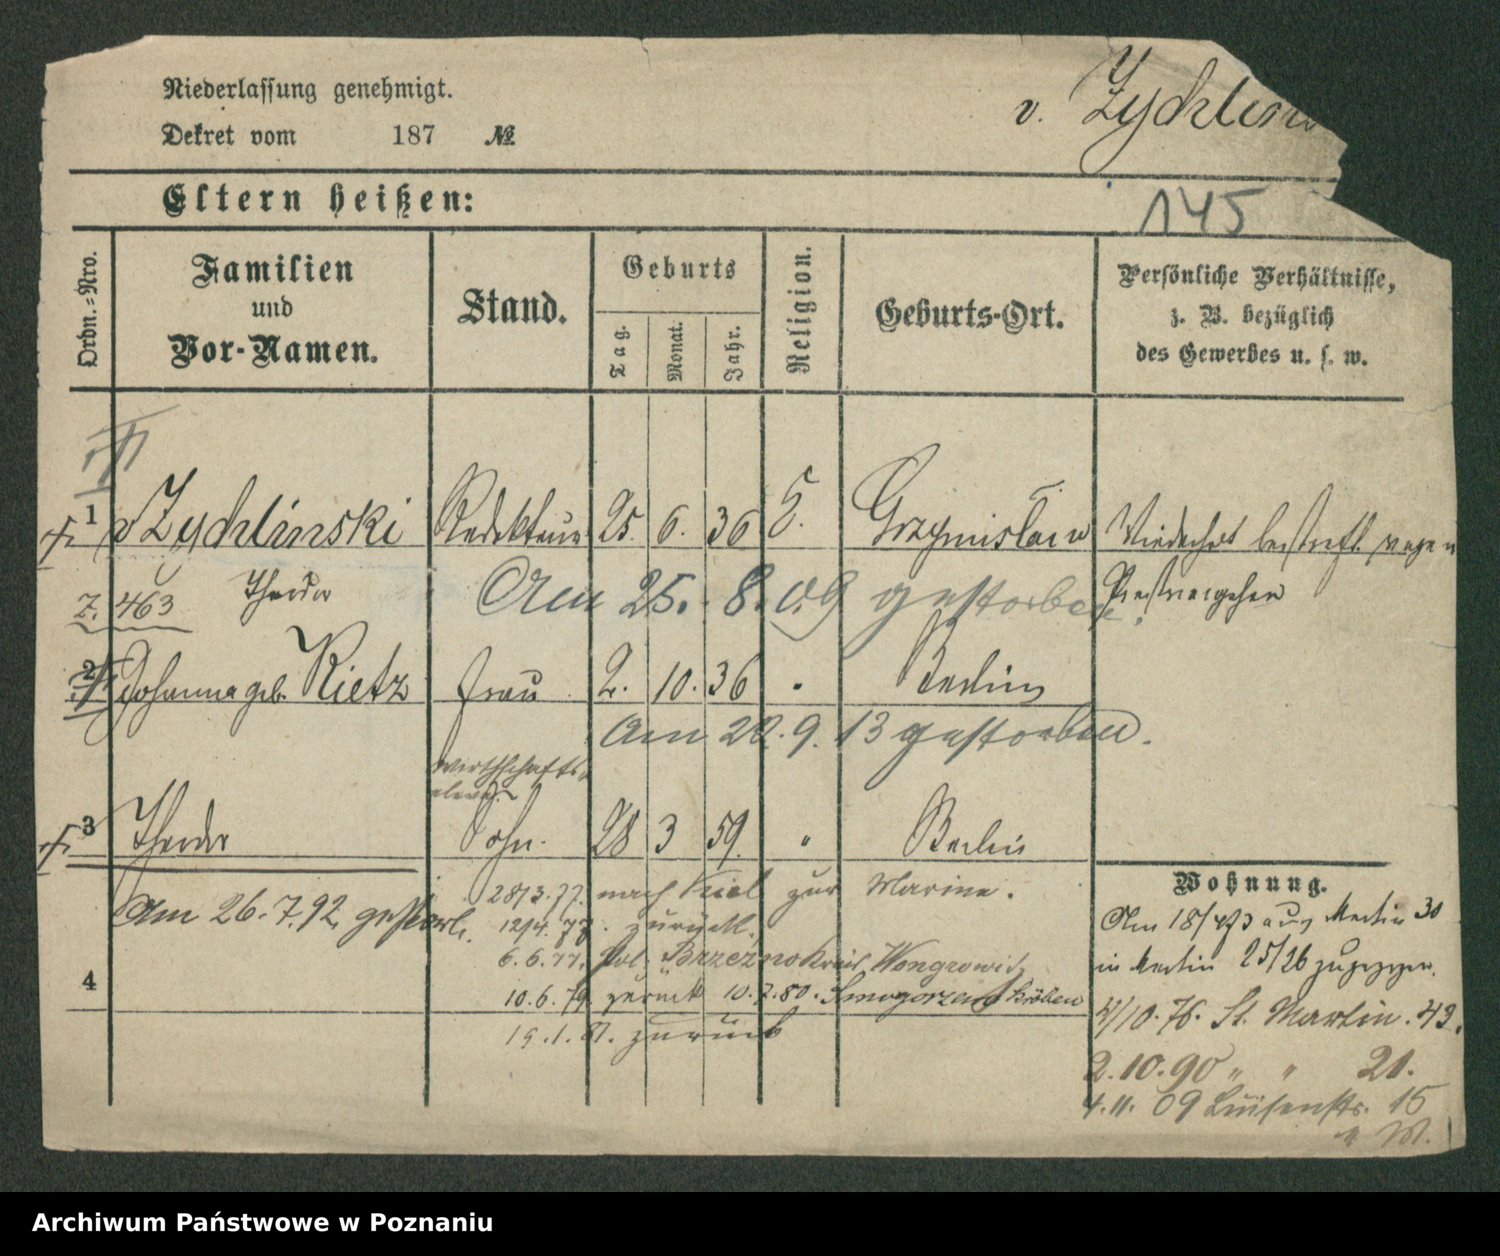 Niederlassung genehmigt.
Dekret vom 187 №
v. Zychlins
Eltern heißen:
145
Ordn.=Nro.
Familien
und
Vor-Namen.
Stand.
Geburts
Tag.
Monat.
Jahr.
Religion.
Geburts-Ort.
Persönliche Verhältnisse,
z. B. bezüglich
des Gewerbes u. s. w.
1 v Zychlinski Redakteur 25. 6. 36 Grzymislaw
463 Theodor
Am 25. 8. 09 gestorben.
2 Johanna geb. Rietz Frau 2. 10. 36 " Berlin
Am 22. 9. 13 gestorben.
Wirthschafts-
eleve
3 Theodor Sohn. 28 3 59. " Berlin
Am 26. 7. 92. gestorb.
28/3. 77. nach Kiel zur Marine.
12/4. 77. zurück.
6. 6. 77. Brzezno Kreis Wongrowitz
10. 6. 79. zurück 10. 7. 80. Smogorzewo Kröben
4
19. 1. 81. zurück
Wohnung.
Am 18/4 73 aus Martin 30
in Martin 25/26 zugezogen.
4/10. 76. St. Martin. 43.
2. 10. 90 " " 21.
4. 11. 09 Luisenstr. 15